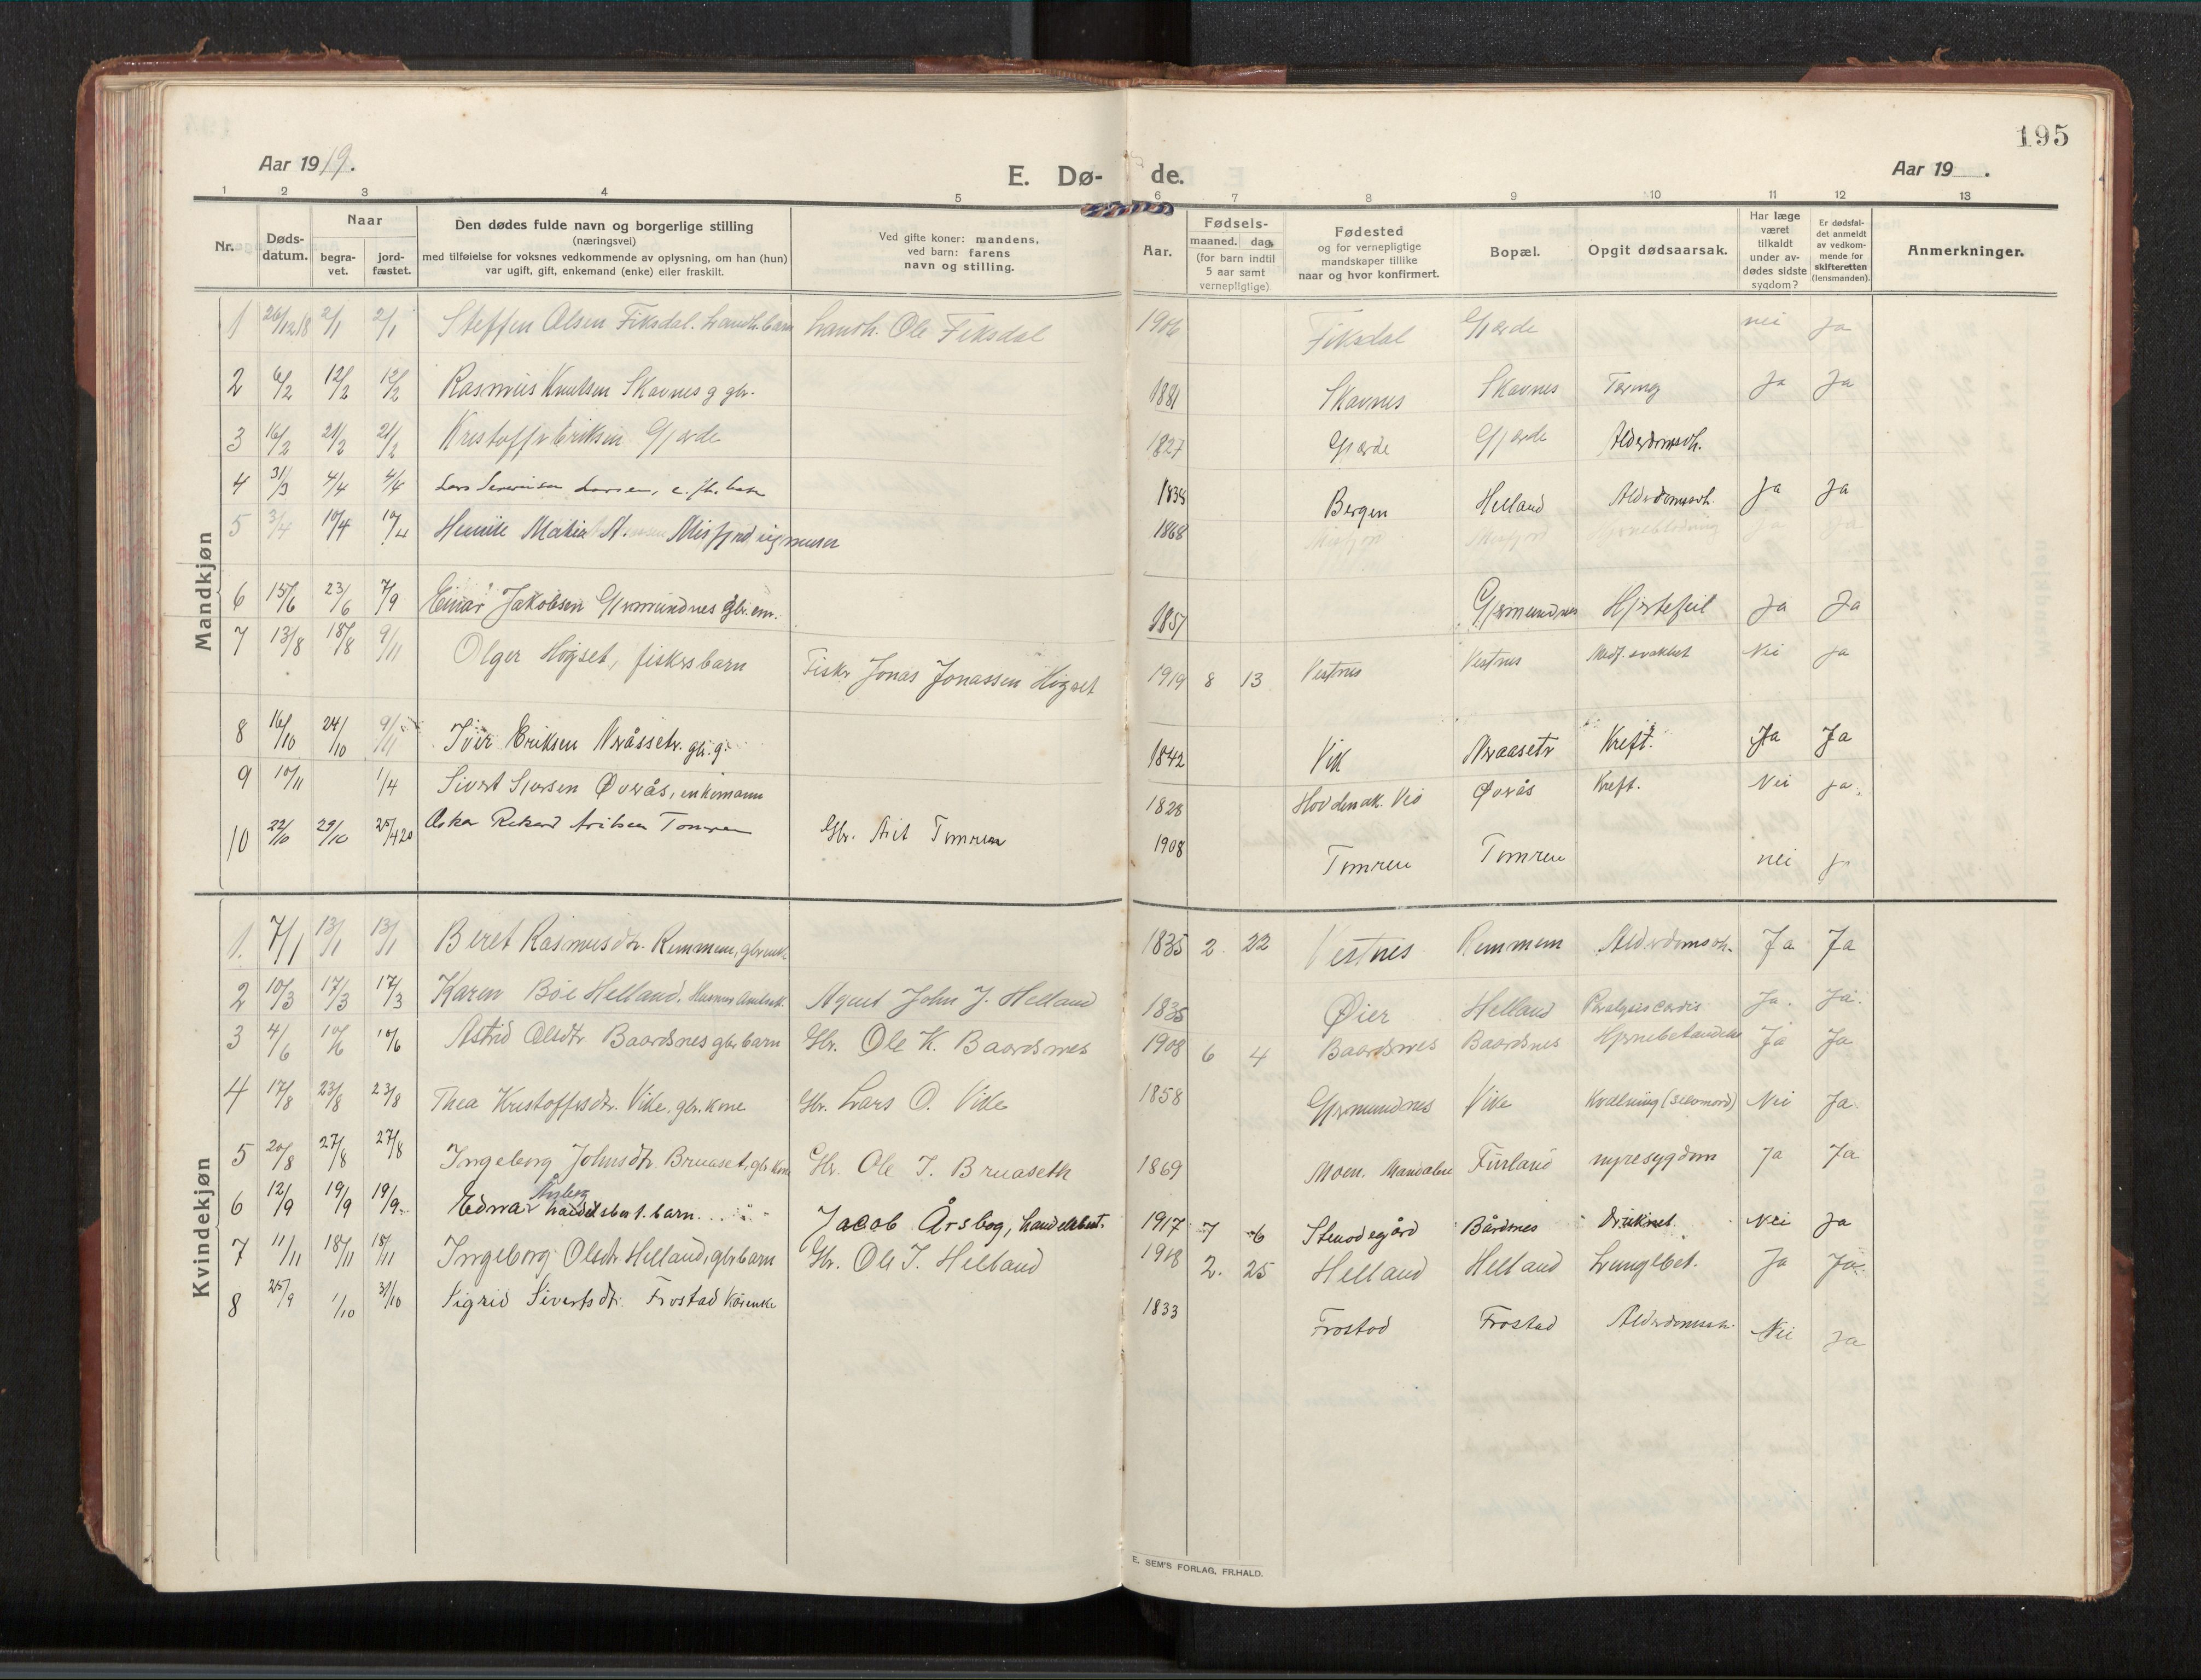 195
Aar 1919.
E. Dø- de.
Aar 19 .
1 2 3 4 5 6 7 8 9 10 11 12 13
Nr. Døds-datum. Naar begra-vet. jord-fæstet. Den dødes fulde navn og borgerlige stilling (næringsvei) med tilføielse for voksnes vedkommende av oplysning, om han (hun) var ugift, gift, enkemand (enke) eller fraskilt. Ved gifte koner: mandens, ved barn: farens navn og stilling. Aar. Fødsels- maaned. dag. (for barn indtil 5 aar samt vernepligtige) Fødested og for vernepligtige mandskaper tillike naar og hvor konfirmert. Bopæl. Opgit dødsaarsak. Har læge været tilkaldt under av-dødes sidste sygdom? Er dødsfal-det anmeldt av vedkom-mende for skifteretten (lensmanden). Anmerkninger.
Mandkjøn
1 26/12 18 2/1 2/1 Steffen Olsen Fiksdal. Landh. barn Landh. Ole Fiksdal 1906 Fiksdal Gjærde nei Ja
2 6/2 12/2 12/2 Rasmus Knutsen Skavnes g gbr. 1881 Skavnes Skavnes Ja Ja
3 16/2 21/2 21/2 Kristoffer Eriksen Gjærde 1827 Gjærde Gjærde Alderdomssvh.
4 31/3 4/4 4/4 Lars Severinsen Larsen, 1838 Bergen Helland Alderdomssvh. Ja Ja
5 3/4 10/4 10/4 Misfjord 1868 Misfjor Misfjor Hjerneblødning Ja Ja
6 15/6 23/6 7/9 Einar Jakobsen Gjermundnes gbr. em. 1857 Gjermundnes Hjertefeil Ja Ja
7 13/8 18/8 9/11 Olger Høgset, fiskersbarn Fisker Jonas Jonassen Høgset 1919 8 13 Vestnes Vestnes Medf. svakhet Nei Ja
8 16/10 24/10 9/11 Iver Eriksen Neråsseter. gbr. g. 1842 Vik Neraaseter Kreft. Ja Ja
9 10/11 1/4 Sivert Sjursen Øverås, enkemann 1828 Hovdenak. Veø Øverås Kreft. Nei Ja.
10 22/10 29/10 25/4 20 Oskar Rikard Tomren Gbr. Arit Tomren 1908 Tomren Tomren nei Ja
Kvindekjøn
1. 7/1 13/1 13/1 Beret Rasmusdtr. Remmem, gbr enk. 1835 2. 22 Vestnes Remmem Alderdomssvh. Ja Ja
2 10/3 17/3 17/3 Karen Bøe Helland. Agent John J. Helland 1835 Øier Helland Paralysis cordis Ja. Ja.
3 4/6 10/6 10/6 Astrid Olsdtr Baardsnes gbr. barn Gbr. Ole K. Baardsnes 1908 6 4 Baardsnes Baardsnes Hjernebetændelse Ja Ja
4 17/8 23/8 23/8 Thea Kristoffersdtr. Vike, gbr. kone Gbr. Lars O. Vike 1858 Gjermundnes Vike Kvælning (selvmord) Nei Ja.
5 20/8 27/8 27/8 Ingeborg Johnsdtr. Bruaset, gbr. kone Gbr. Ole J. Bruaseth 1869 Moen. Mandalen Furland nyresygdom Ja Ja
6 12/9 19/9 19/9 Edna Årsbog handelsbest. barn Jacob Årsbog, handelsbest. 1917 7 6 Stenødegjård Bårdsnes Druknet Nei Ja
7 11/11 18/11 18/11 Ingeborg Olsdtr. Helland, gbr. barn Gbr. Ole J. Helland 1918 2. 25 Helland Helland Lungebet. Ja Ja.
8 25/9 1/10 31/10 Sigrid Sivertsdtr. Frostad Kårenke 1833 Frostad Frostad Alderdomssvh. Nei Ja
E. SEM'S FORLAG, FR.HALD.